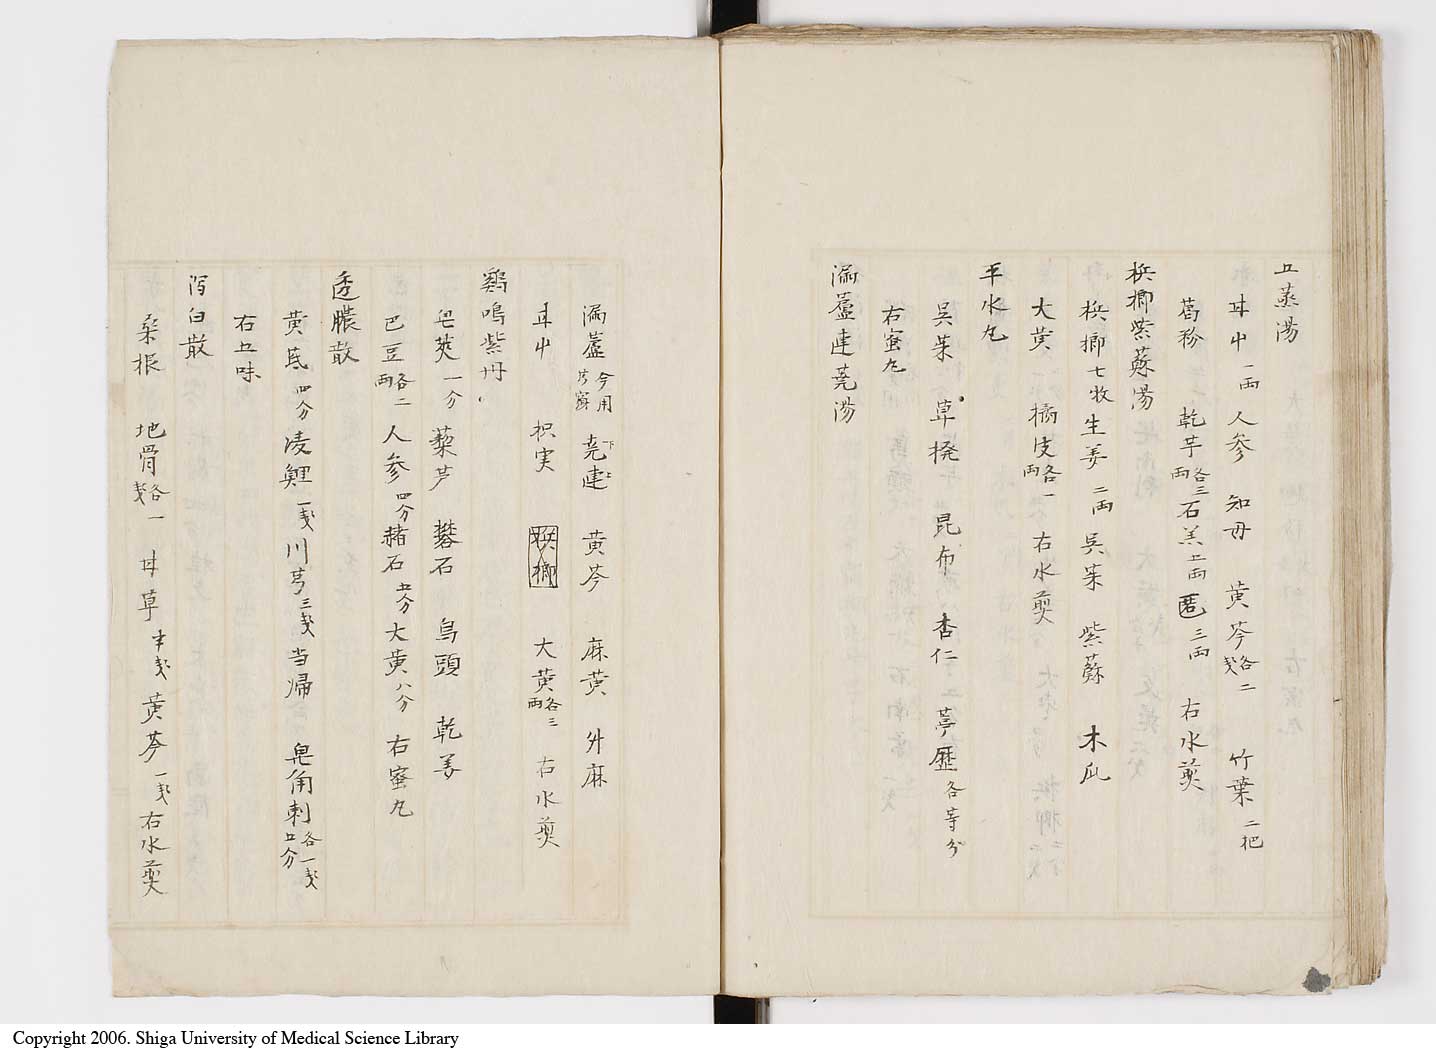 五蒸湯
甘中一両 人参 知母 黄芩各二戔 竹葉二把
葛粉 乾芋各三両 石羔五両 匽三両 右水煎
梹榔紫蘇湯
梹榔七牧 生姜二両 呉茱 紫蘇 木瓜
大黄 橘皮各一両 右水煎
平水丸
呉茱 草撓 昆布 杏仁 葶歴各等分
右蜜丸
漏蘆連堯湯
漏蘆今用芍薬 堯下連上 黄芩 麻黄 外麻
甘中 枳実 梹榔 大黄各三両 右水煎
鷄鳴紫丹
皂莢一分 藜芦 礬石 烏頭 乾姜
巴豆各二両 人参四分 赭石五分 大黄八分 右蜜丸
透膿散
黄芪四分 凌鯉一戔 川芎三戔 当帰 皂角刺各一戔五分
右五味
泻白散
桒根 地骨各一戔 甘草半戔 黄芩一戔 右水煎
Copyright 2006. Shiga University of Medical Science Library